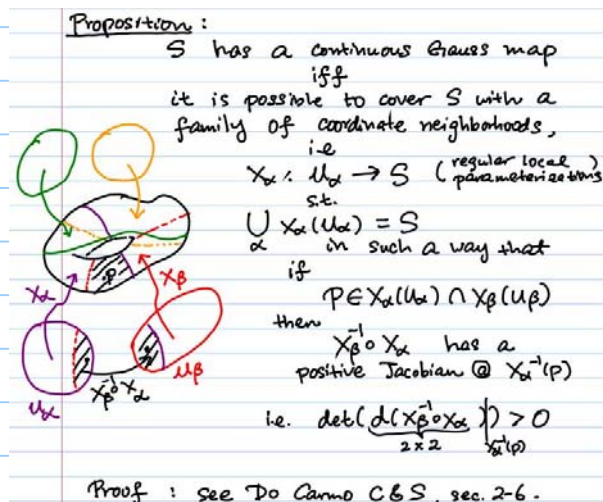 Proposition :
S has a continuous Gauss map
iff
it is possible to cover S with a
family of coordinate neighborhoods,
i.e
Xα : Uα → S (regular local parameterizations)
s.t.
⋃α Xα(Uα) = S
in such a way that
if
P ∈ Xα(Uα) ∩ Xβ(Uβ)
then
Xβ⁻¹ ∘ Xα has a
positive Jacobian @ Xα⁻¹(p)
i.e. det(d(Xβ⁻¹∘Xα)|Xα⁻¹(p)) > 0
2×2
P
Xα
Xβ
Uα
Xβ⁻¹∘Xα
Uβ
Proof : see Do Carmo C&S, sec. 2-6.